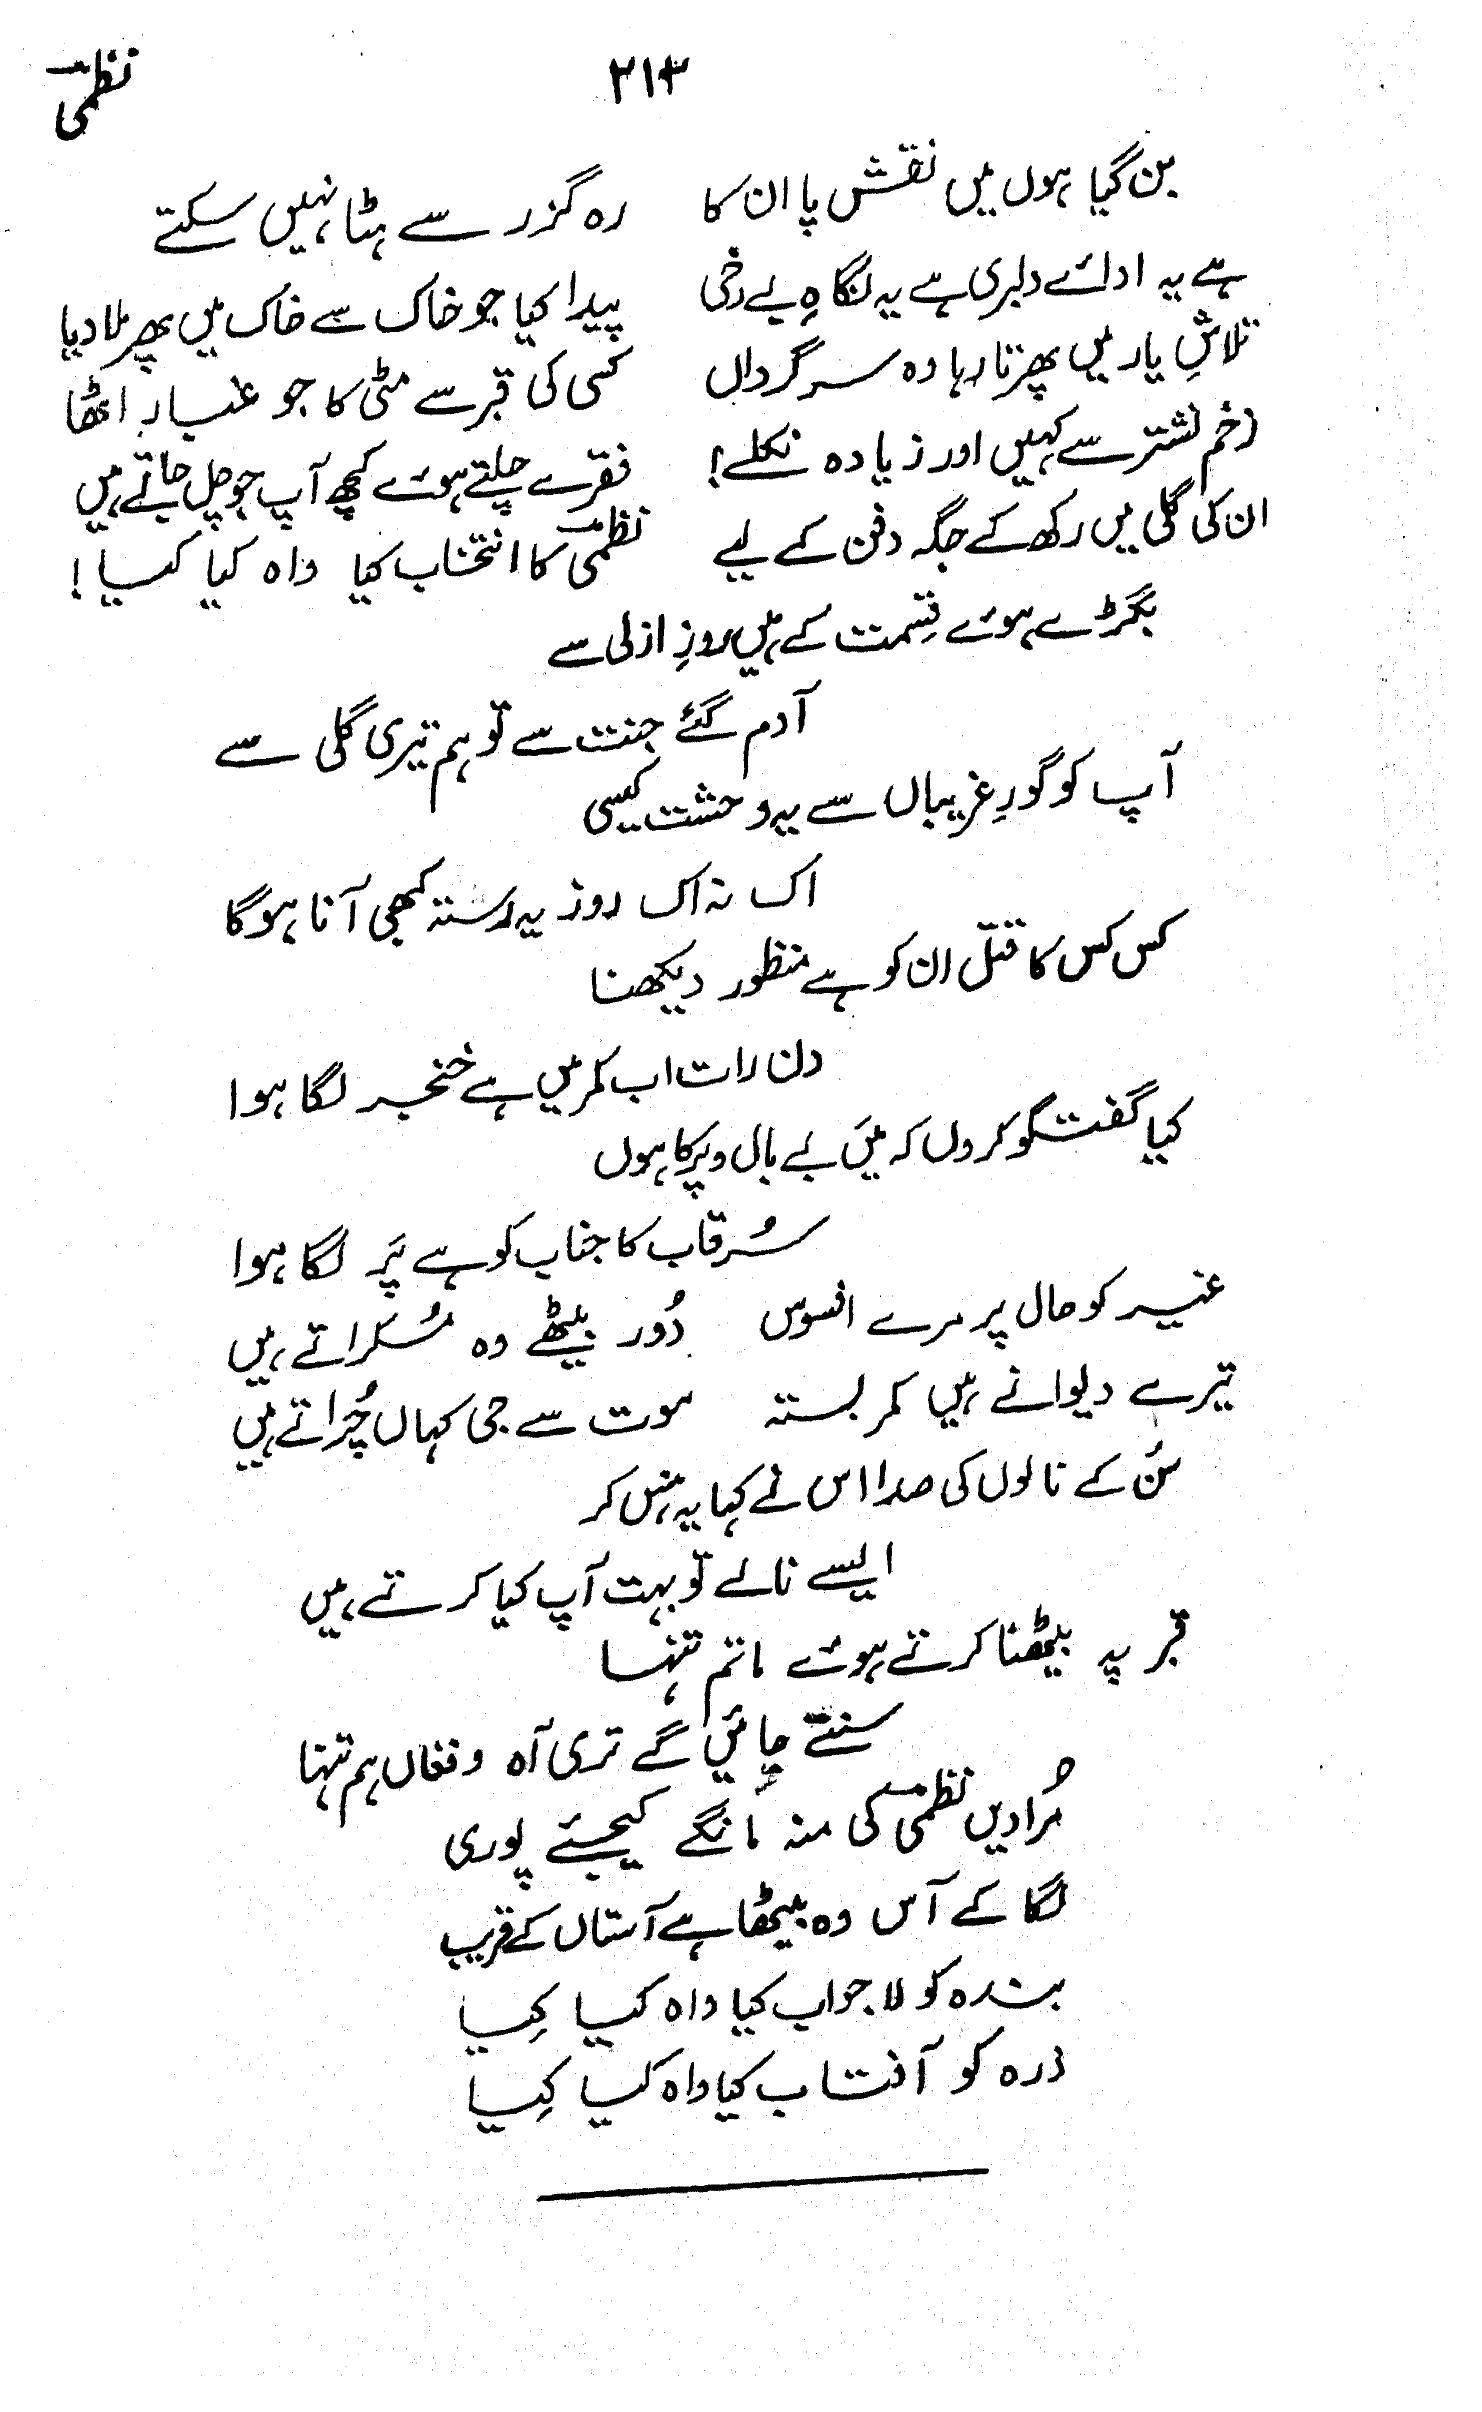 ۲۱۳
نظمی
بن گیا ہوں میں نقش پا ان کا    رہ گزر سے ہٹا نہیں سکتے
ہے یہ ادائے دلبری ہے یہ نگاہِ بے رخی    پیدا کیا جو خاک سے خاک میں پھر ملا دیا
تلاشِ یار میں پھرتا رہا وہ سرگرداں    کسی کی قبر سے مٹی کا جو غبار اٹھا
زخم نشتر سے کہیں اور زیادہ نکلے!    فقرے چلتے ہوئے کچھ آپ جو چل جاتے ہیں
ان کی گلی میں رکھ کے جگہ دفن کے لیے    نظمی کا انتخاب کیا واہ کیا کیا!
بگڑے ہوئے قِسمت کے ہیں روزِ ازلی سے
آدم گئے جنت سے تو ہم تیری گلی سے
آپ کو گورِ غریباں سے یہ وحشت کیسی
اک نہ اک روز یہ رستہ کبھی آنا ہوگا
کس کس کا قتل ان کو ہے منظور دیکھنا
دن رات اب کمر میں ہے خنجر لگا ہوا
کیا گفتگو کروں کہ میَں بے بال و پر کا ہوں
سُرقاب کا جناب کو ہے پَر لگا ہوا
غیر کو حال پر مرے افسوس    دُور بیٹھے وہ مُسکراتے ہیں
تیرے دیوانے ہیں کمر بستہ    موت سے جی کہاں چُراتے ہیں
سُن کے نالوں کی صدا اس نے کہا یہ ہنس کر
ایسے نالے تو بہت آپ کیا کرتے ہیں
قبر پہ بیٹھنا کرتے ہوئے ماتم تنہا
سنتے جائیں گے تری آہ و فغاں ہم تنہا
مُرادیں نظمی کی منہ مانگے کیجئے پوری
لگا کے آس وہ بیٹھا ہے آستاں کے قریب
بندہ کو لا جواب کیا واہ کیا کِیا
ذرہ کو آفتاب کیا واہ کیا کِیا